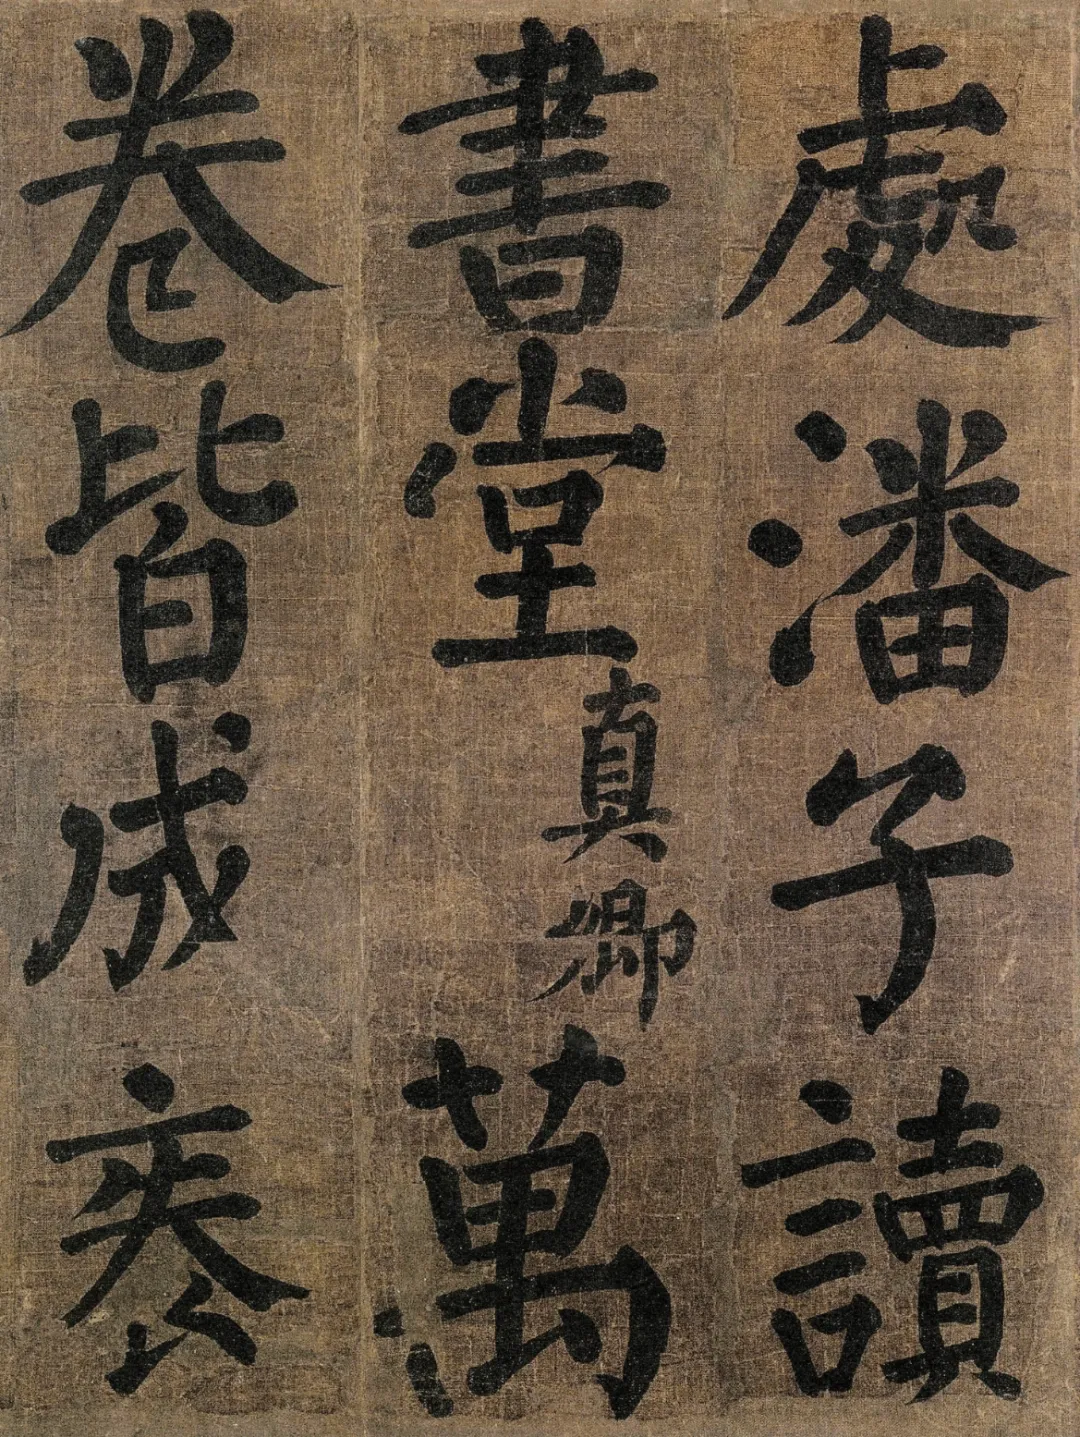 處潘子讀
書堂真卿萬
卷皆成袠